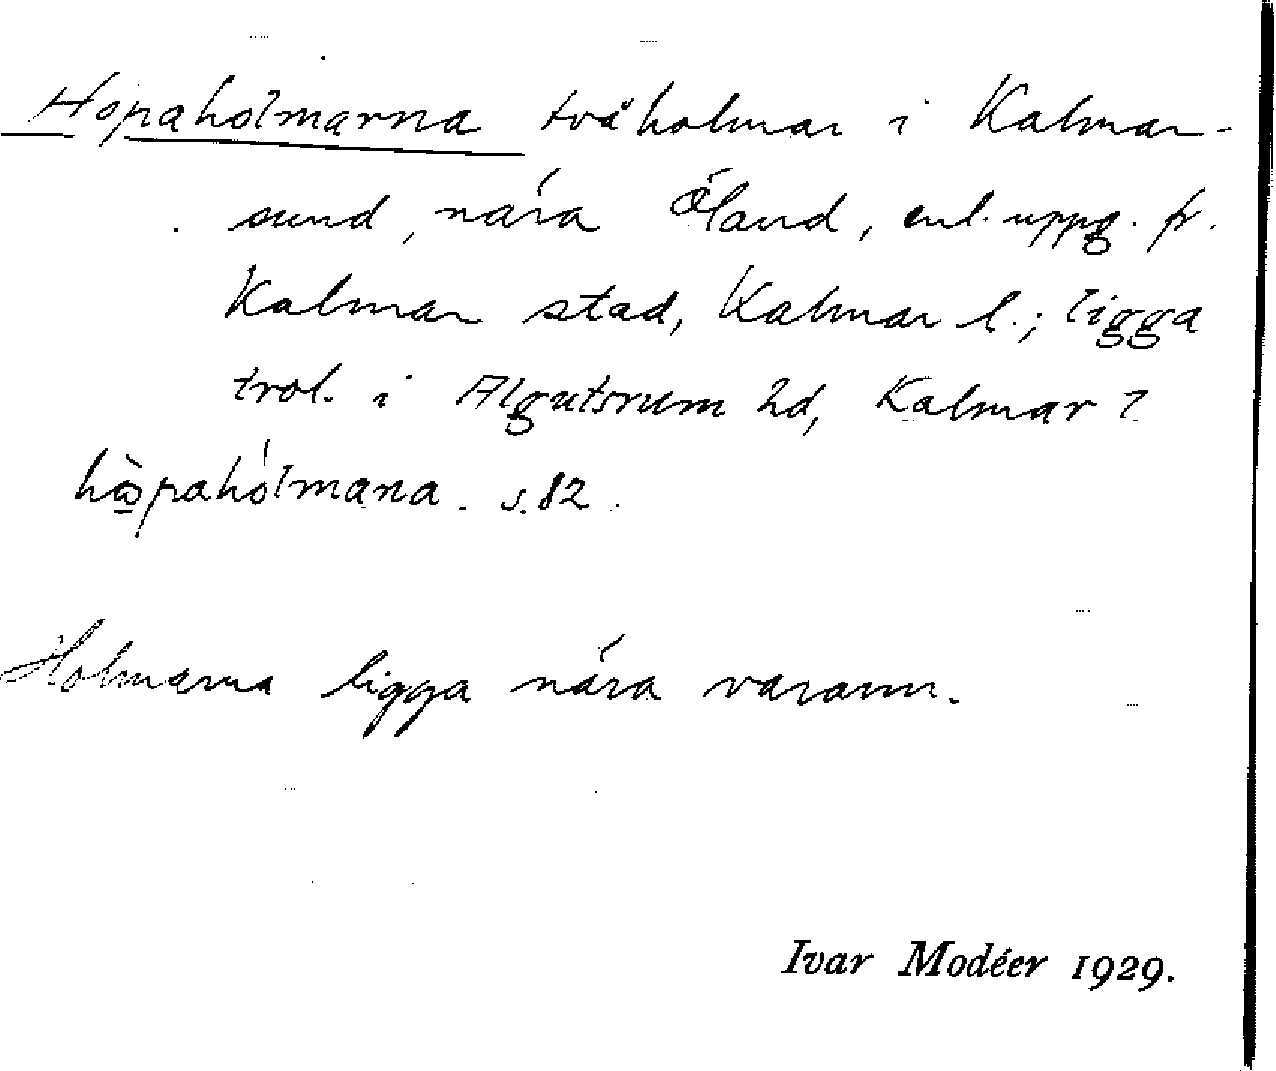 Hopaholmarna två holmar i Kalmar-
sund, nära Öland, enl. uppg. fr.
Kalmar stad, Kalmar l.; ligga
trol. i Algutsrum hd, Kalmar l
hò̲pahólmana. s. 82.
Holmarna ligga nära varann.
Ivar Modéer 1929.